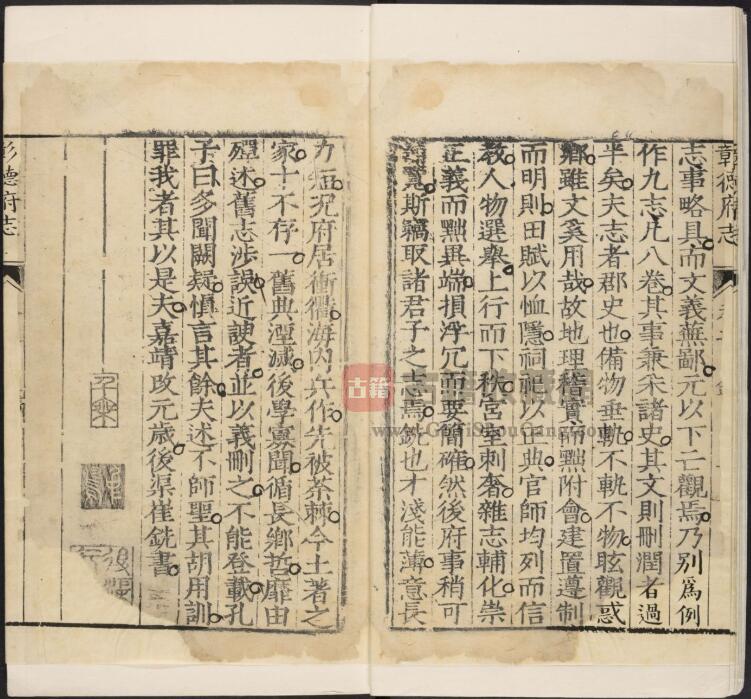 彰德府志
志事略具而文義蕪鄙元以下亡觀焉乃别爲例
作九志凡八卷其事兼采諸史其文則刪潤者過
半矣夫志者郡史也備物垂軌不軌不物眩觀惑
鄉雖文奚用哉故地理稽實而黜附會建置遵制
而明則田賦以恤隱祠祀以正典官師均列而信
教人物選舉上行而下秩宮室刺奢雜志輔化崇
正義而黜異端損浮冗而要簡確然後府事稍可
覽斯竊取諸君子之志焉銑也才淺能薄意長
力短況府居衝衢海内兵作先被荼棘今土著之
家十不存一舊典湮滅後學寡聞循長鄉哲靡由
殫述舊志涉誤近諛者並以義刪之不能登載孔
子曰多聞闕疑慎言其餘夫述不師聖其胡用訓
罪我者其以是夫嘉靖改元歳後渠崔銑書
彰德府志
古籍
www.GujiShouCang.com